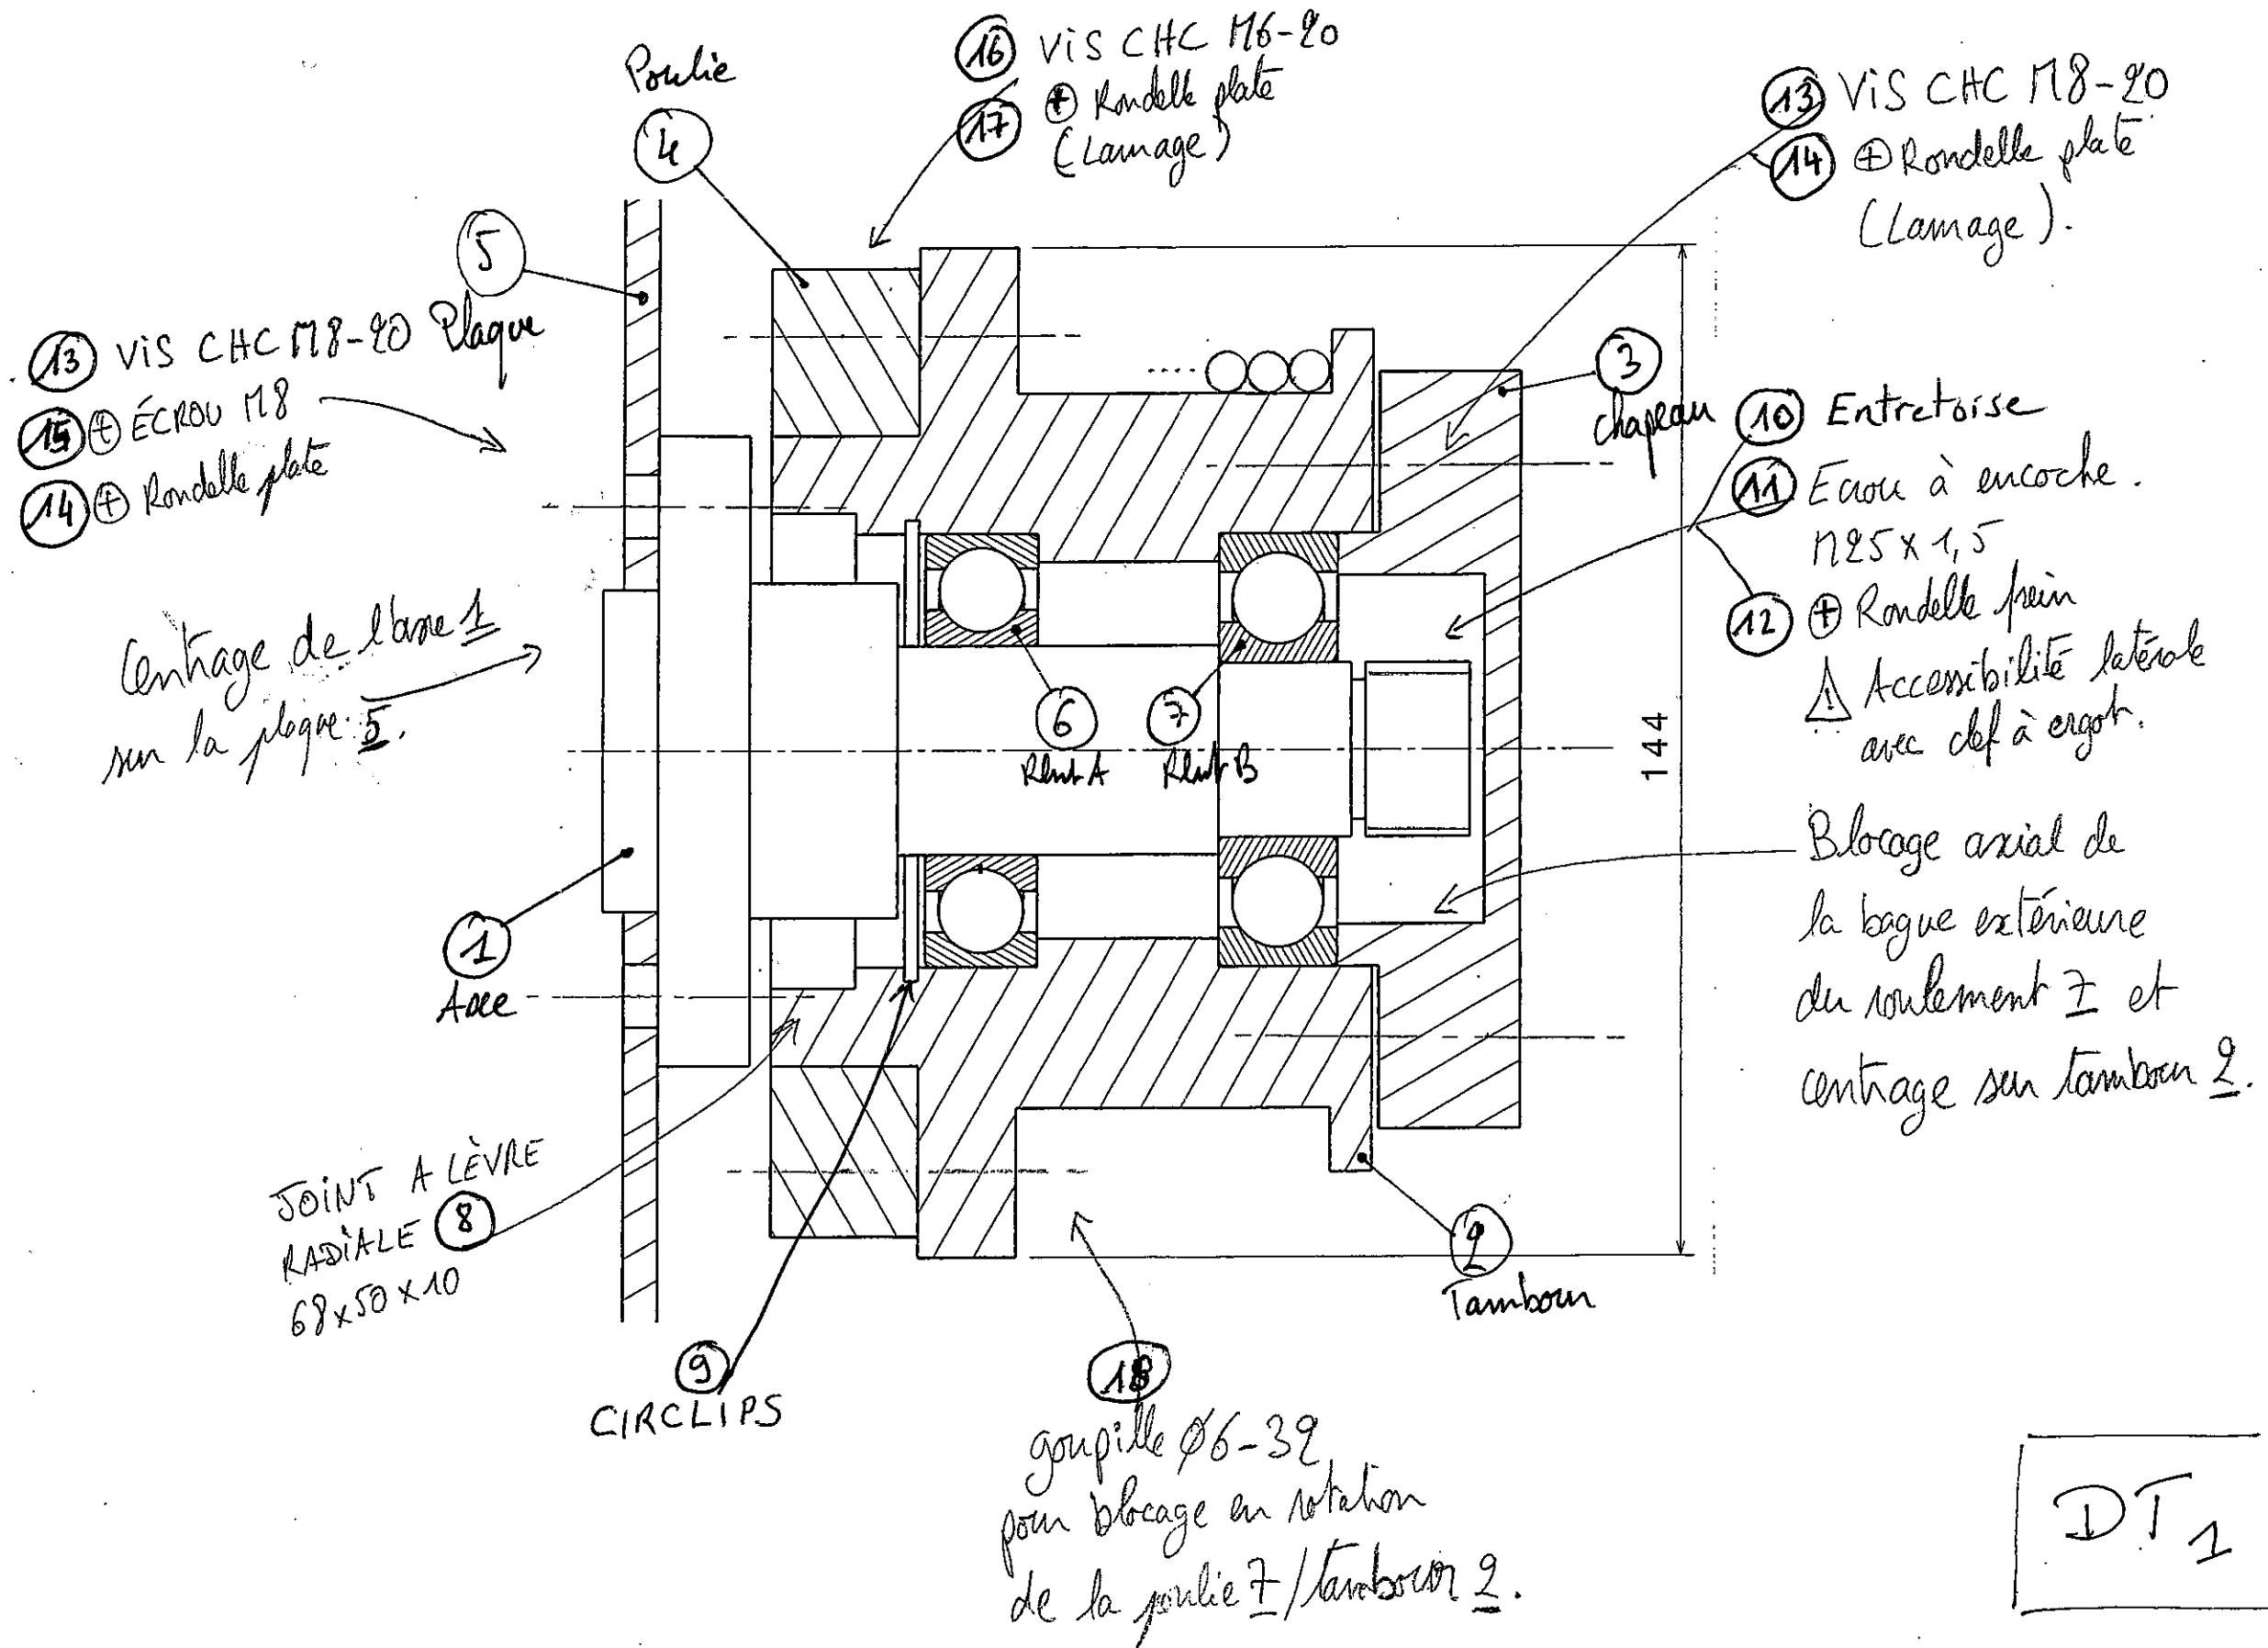 Poulie
4
16 VIS CHC M6-20
17 ⊕ Rondelle plate
(Lamage)
13 VIS CHC M8-20
14 ⊕ Rondelle plate
(Lamage).
5
Plaque
13 VIS CHC M8-20
15 ⊕ ÉCROU M8
14 ⊕ Rondelle plate
3
chapeau
10 Entretoise
11 Ecrou à encoche.
M25 x 1,5
12 ⊕ Rondelle frein
⚠ Accessibilité latérale
avec clef à ergot.
Centrage de l'axe 1
sur la plaque 5.
6
Rlmt A
7
Rlmt B
144
Blocage axial de
la bague extérieure
du roulement 7 et
centrage sur tambour 2.
1
Axe
JOINT A LÈVRE
RADIALE 8
68x50x10
2
Tambour
9
CIRCLIPS
18
goupille Ø6-32
pour blocage en rotation
de la poulie 7/tambour 2.
DT1